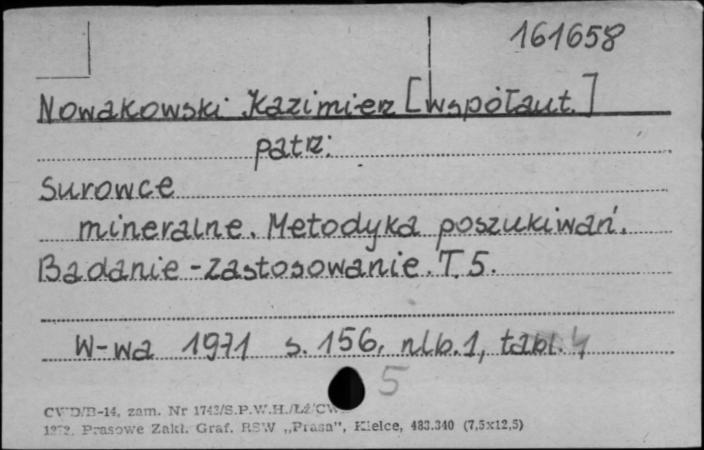 161658
Nowakowski Kazimierz [współaut.]
patrz:
Surowce
mineralne. Metodyka poszukiwań.
Badanie-zastosowanie. T. 5.
W-wa 1971 s. 156, nlb. 1, tabl. 4
5
CWD/B-14, zam. Nr 1743/S.P.W.H./Łź/CWD
1972. Prasowe Zakł. Graf. RSW „Prasa", Kielce, 483.340 (7,5x12,5)